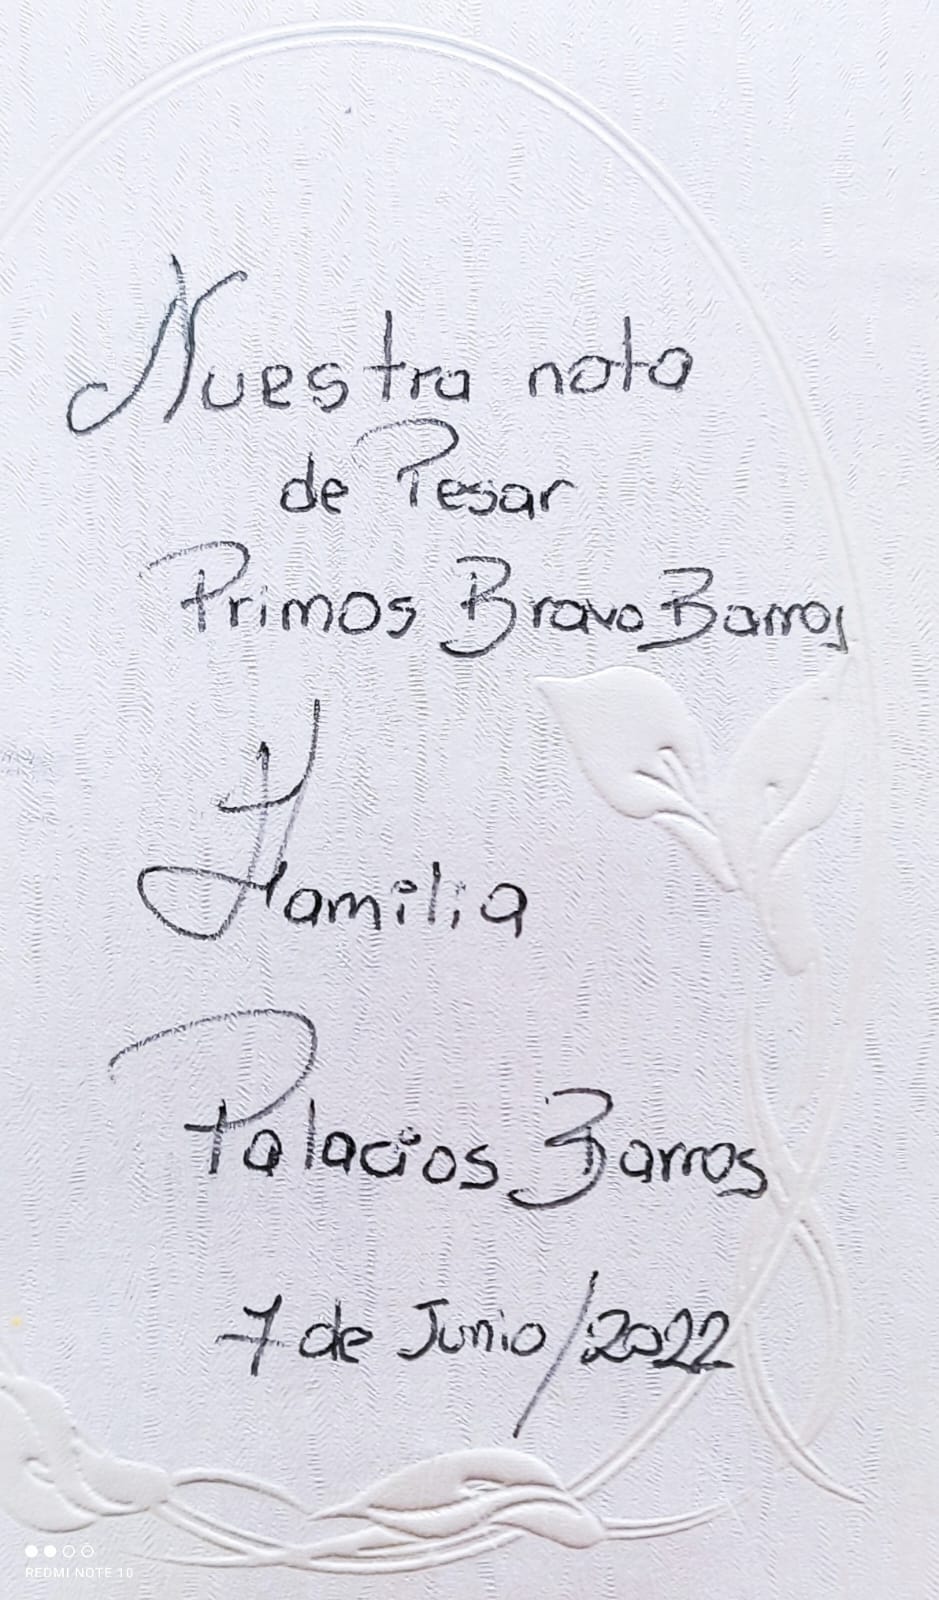 Nuestra nota
de Pesar
Primos Bravo Barros
Familia
Palacios Barros
7 de Junio/2022
REDMI NOTE 10